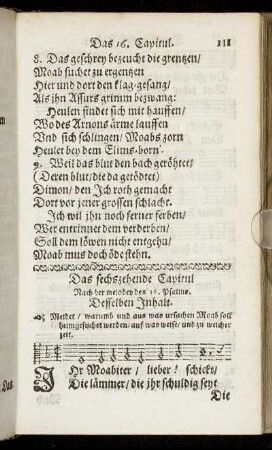 Das 16. Capitul. 111
8. Das geschrey bezeucht die grentzen/
Moab suchet zu ergentzen
Hier und dort den klag-gesang/
Als jhn Assurs grimm bezwang:
Heulen findet sich mit hauffen/
Wo des Arnons ärme lauffen
Vnd sich schlingen/ Moabs zorn
Heulet bey dem Elims-born.
9. Weil das blut den bach geröhtet/
(Deren blut/ die da getödtet)
Dimon/ den Ich roth gemacht
Dort vor jener grossen schlacht.
Ich wil jhn noch ferner ferben/
Wer entrinnet dem verderben/
Soll dem löwen nicht entgehn/
Moab mus doch öde stehn.
Das sechszehende Capitul
Nach der melodey des 16. Psalms.
Desselben Inhalt.
Meldet / warumb und aus was ursachen Moab soll
heimgesuchet werden/ auf was weise/ und zu welcher
zeit.
IHr Moabiter/ lieber! schickt/
Die lämmer/ die jhr schuldig seyt
Die